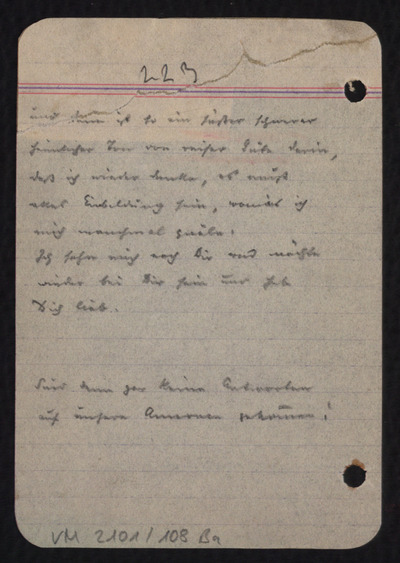 223
und dann ist so ein süßer schwerer
heimlicher Ton von reifer Süße darin,
daß ich wieder denke, es muß
alles Einbildung sein, womit ich
mich manchmal quäle!
Ich sehne mich nach Dir und möchte
wieder bei Dir sein und habe
Dich lieb.
Sind denn gar keine Antworten
auf unsere Annoncen gekommen!
VM 2101/108 Ba